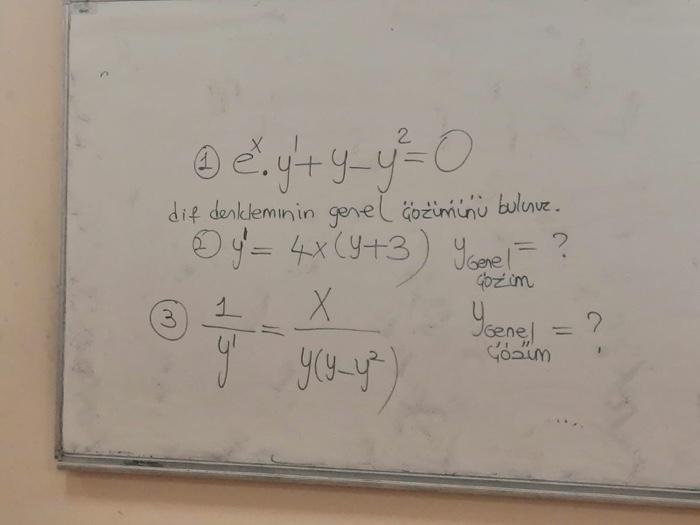 ① eˣ.y'+y-y²=0
dif denkleminin genel çözümünü bulunuz.
② y' = 4x(y+3) y Genel çözüm = ?
③ 1/y' = x/y(y-y²) y Genel çözüm = ?
....